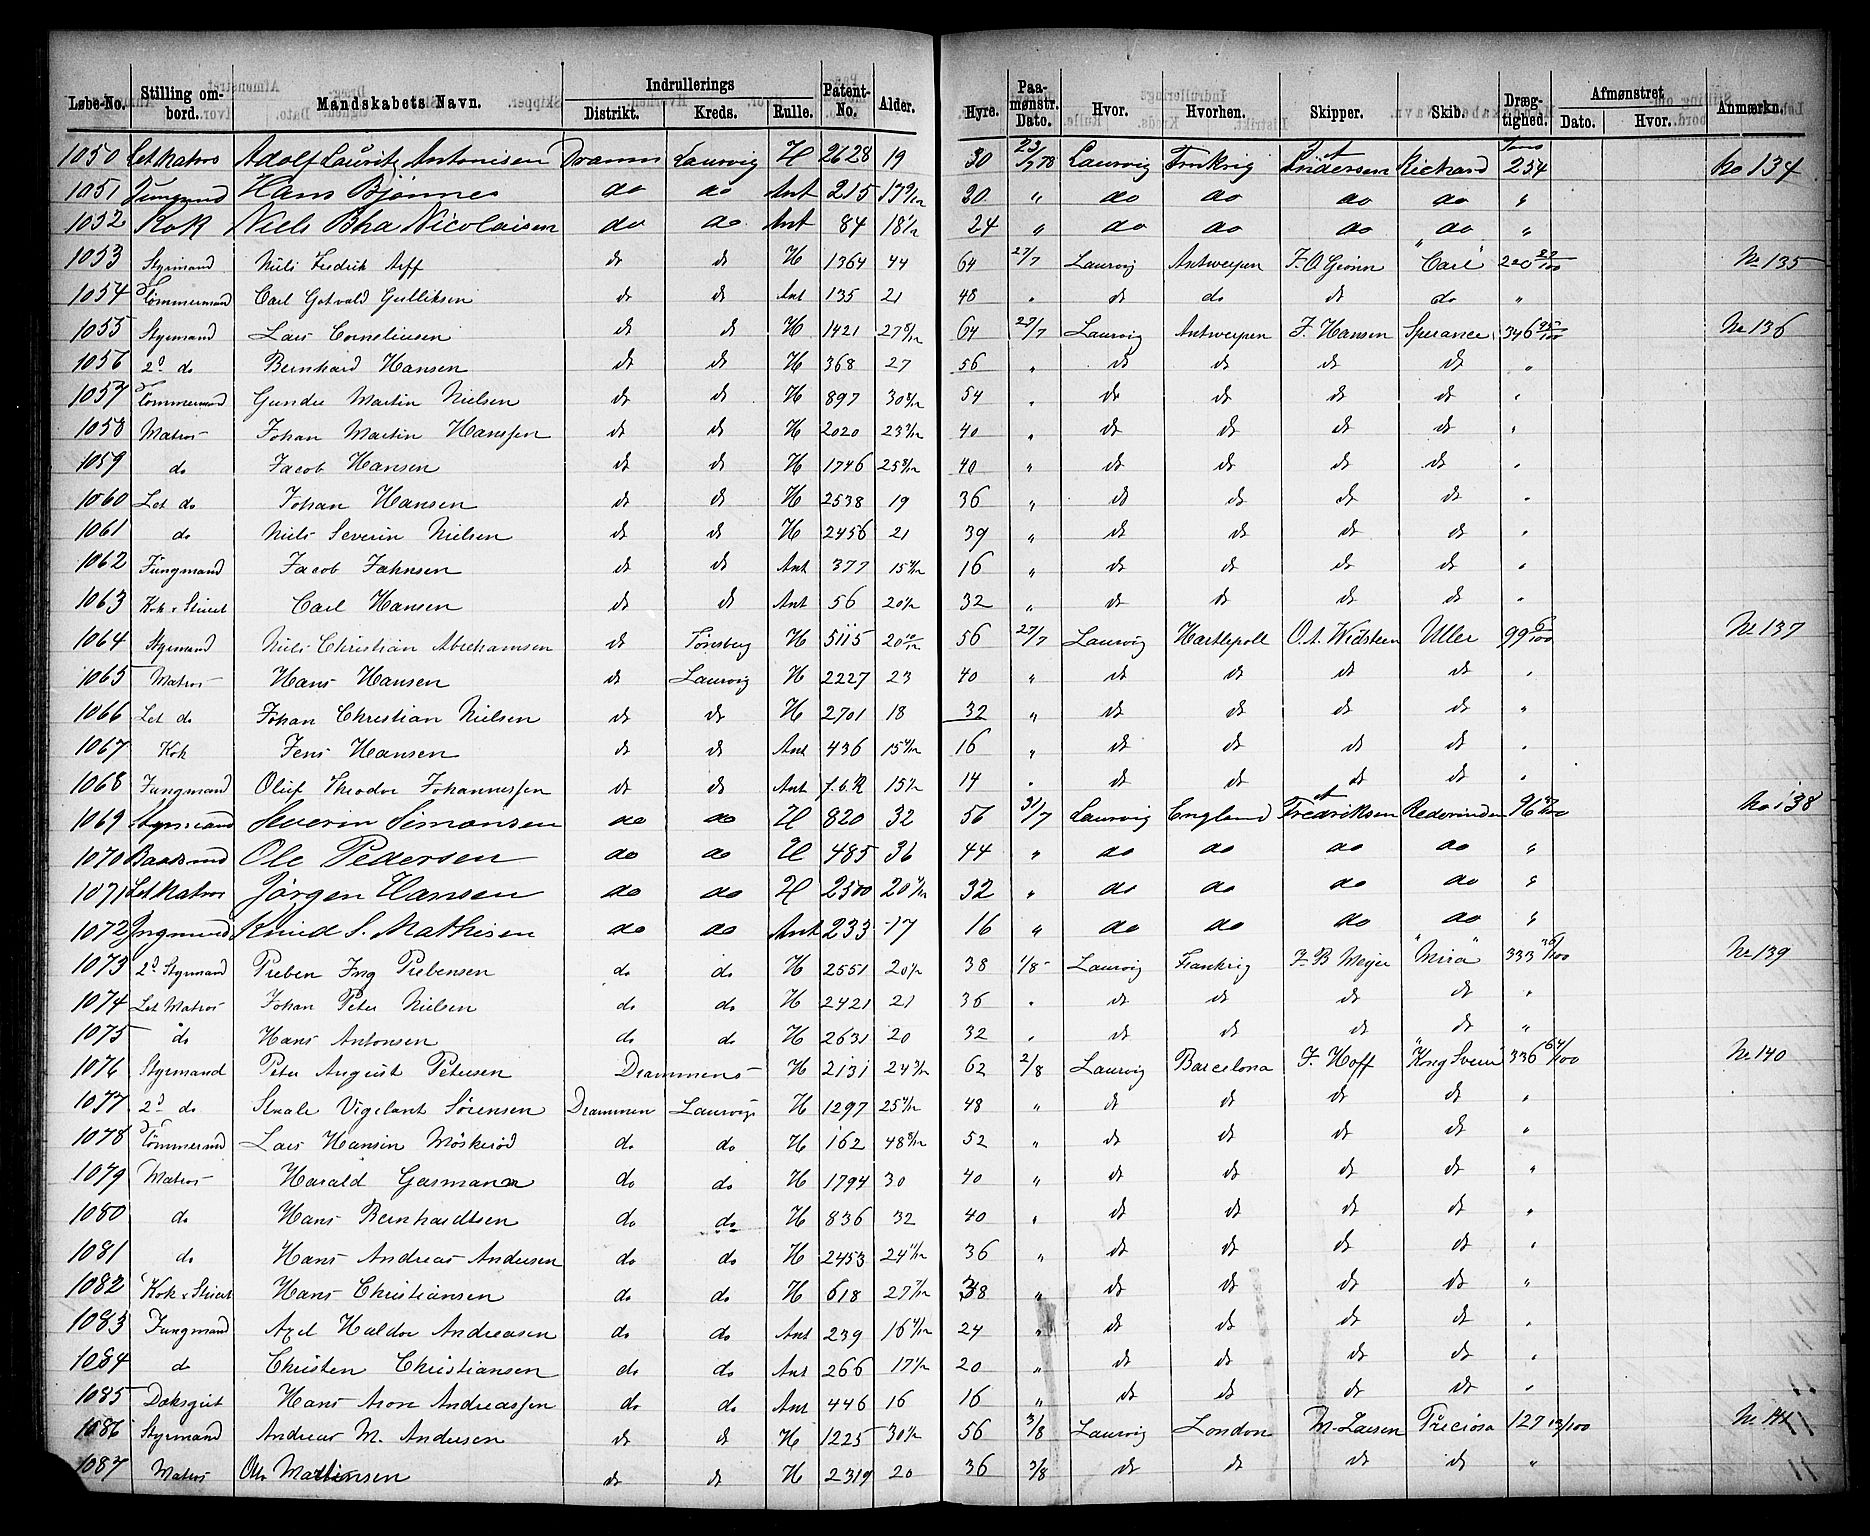 Løbe-No. Stilling ombord. Mandskabets Navn. Indrullerings Distrikt. Kreds. Rulle. Patent-No. Alder. Hyre. Paamønstr. Dato. Hvor. Hvorhen. Skipper. Skib. Drægtighed. Afmønstret Dato. Hvor. Anmærkn.
1050 Let Matros Adolf Lauritz Antonisen Dramm Laurvig H 2628 19 30 23/7 78 Laurvig Frnkrig Andersen Richard 254 No 134
1051 Jungmnd Hans Bjønnes do do Ant 215 17 9/12 20 " do do do do "
1052 Kok Niels Bha Nicolaisen do do Ant 84 18 1/2 24 " do do do do "
1053 Styrmand Niels Fredrik Arff do do H 1364 44 64 27/7 Laurvig Antwerpen F. O. Grønn "Carl" 220 No 135
1054 Tømmermand Carl Gotvald Gulliksen do do Ant 135 21 48 " do do do do "
1055 Styrmand Lars Corneliusen do do H 1421 27 64 27/7 Laurvig Antwerpen F. Hansen Sperance 346 No 136
1056 2d do Bernhard Hansen do do H 368 27 56 " do do do do "
1057 Tømmermand Gunder Martin Nielsen do do H 897 30 54 " do do do do "
1058 Matros Johan Martin Hanssen do do H 2020 23 40 " do do do do "
1059 do Jacob Hansen do do H 1746 25 40 " do do do do "
1060 Let do Johan Hansen do do H 2538 19 36 " do do do do "
1061 do Niels Severin Nielsen do do H 2456 21 39 " do do do do "
1062 Jungmand Jacob Jahnsen do do Ant 377 15 16 " do do do do "
1063 Kok & Stuert Carl Hansen do do Ant 56 20 1/2 32 " do do do do "
1064 Styrmand Niels Christian Abrahamsen do Tønsberg H 5115 20 10/12 56 27/7 Laurvig Hartlepoll O. A. Widsteen Uller 99 No 137
1065 Matros Hans Hansen do Laurvig H 2227 23 40 " do do do do "
1066 Let do Johan Christian Nielsen do do H 2701 18 32 " do do do do "
1067 Kok Jens Hansen do do Ant 436 15 16 " do do do do "
1068 Jungmand Oluf Theodor Johannessen do do Ant 15 1/2 14 " do do do do "
1069 Styrmand Severin Simonsen do do H 820 32 56 31/7 Laurvig England Fredriksen Rederinden 96 No 138
1070 Baadsmd Ole Pedersen do do H 485 36 44 " do do do do "
1071 Let Matros Jørgen Hansen do do H 2500 20 32 " do do do do "
1072 Jngmand Knud S. Mathisen do do Ant 233 17 16 " do do do do "
1073 2d Styrmand Preben Ing Prebensen do do H 2551 20 1/2 38 1/8 Laurvig Frankrig F. B Meyer "Mira" 333 No 139
1074 Let Matros Johan Peter Nielsen do do H 2421 21 36 " do do do do "
1075 do Hans Antonsen do do H 2631 20 32 " do do do do "
1076 Styrmand Peter August Petersen Drammens H 2131 24 62 2/8 Laurvig Barcelona F. Hoff "Kong Sverre" 336 64/100 No 140
1077 2d do Staale Vigelant Sørensen Drammen Laurvigs H 1297 25 48 " do do do do "
1078 Tømmermd Lars Hansen Møskerød do do H 162 48 52 " do do do do "
1079 Matros Harald Gasmann do do H 1794 30 40 " do do do do "
1080 do Hans Bernhardtsen do do H 836 32 40 " do do do do "
1081 do Hans Andreas Andersen do do H 2453 24 36 " do do do do "
1082 Kok & Stuert Hans Christiansen do do H 618 27 38 " do do do do "
1083 Jungmand Axel Haldor Andreasen do do Ant 239 16 24 " do do do do "
1084 do Christen Christiansen do do Ant 266 17 20 " do do do do "
1085 Dæksgut Hans Aron Andreassen do do Ant 446 16 16 " do do do do "
1086 Styrmand Andreas M. Andersen do do H 1225 30 1/2 56 3/8 Laurvig London M. Larsen Preciosa 127 13/100 No 141
1087 Matros Otto Martinsen do do H 2319 20 36 3/8 do do do do "